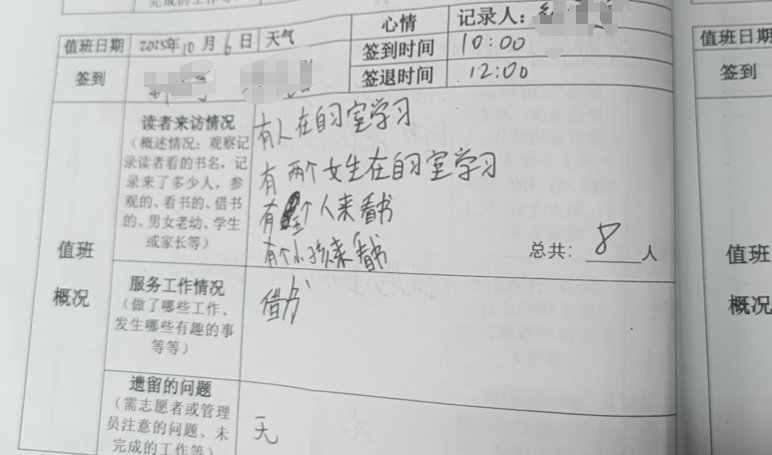 完成的工作等)
值班日期 2025年10月6日 天气 心情 记录人:
签到时间 10:00
签到 签退时间 12:00
值班概况
读者来访情况
(概述情况:观察记
录读者看的书名,记
录来了多少人,参
观的、看书的、借书
的、男女老幼、学生
或家长等)
有人在自习室学习
有两个女生在自习室学习
有个人来看书
有个小孩来看书
总共:8人
服务工作情况
(做了哪些工作、
发生哪些有趣的事
等等)
借书
遗留的问题
(需志愿者或管理
员注意的问题、未
完成的工作等)
无
值班日期
签到
值班
概况